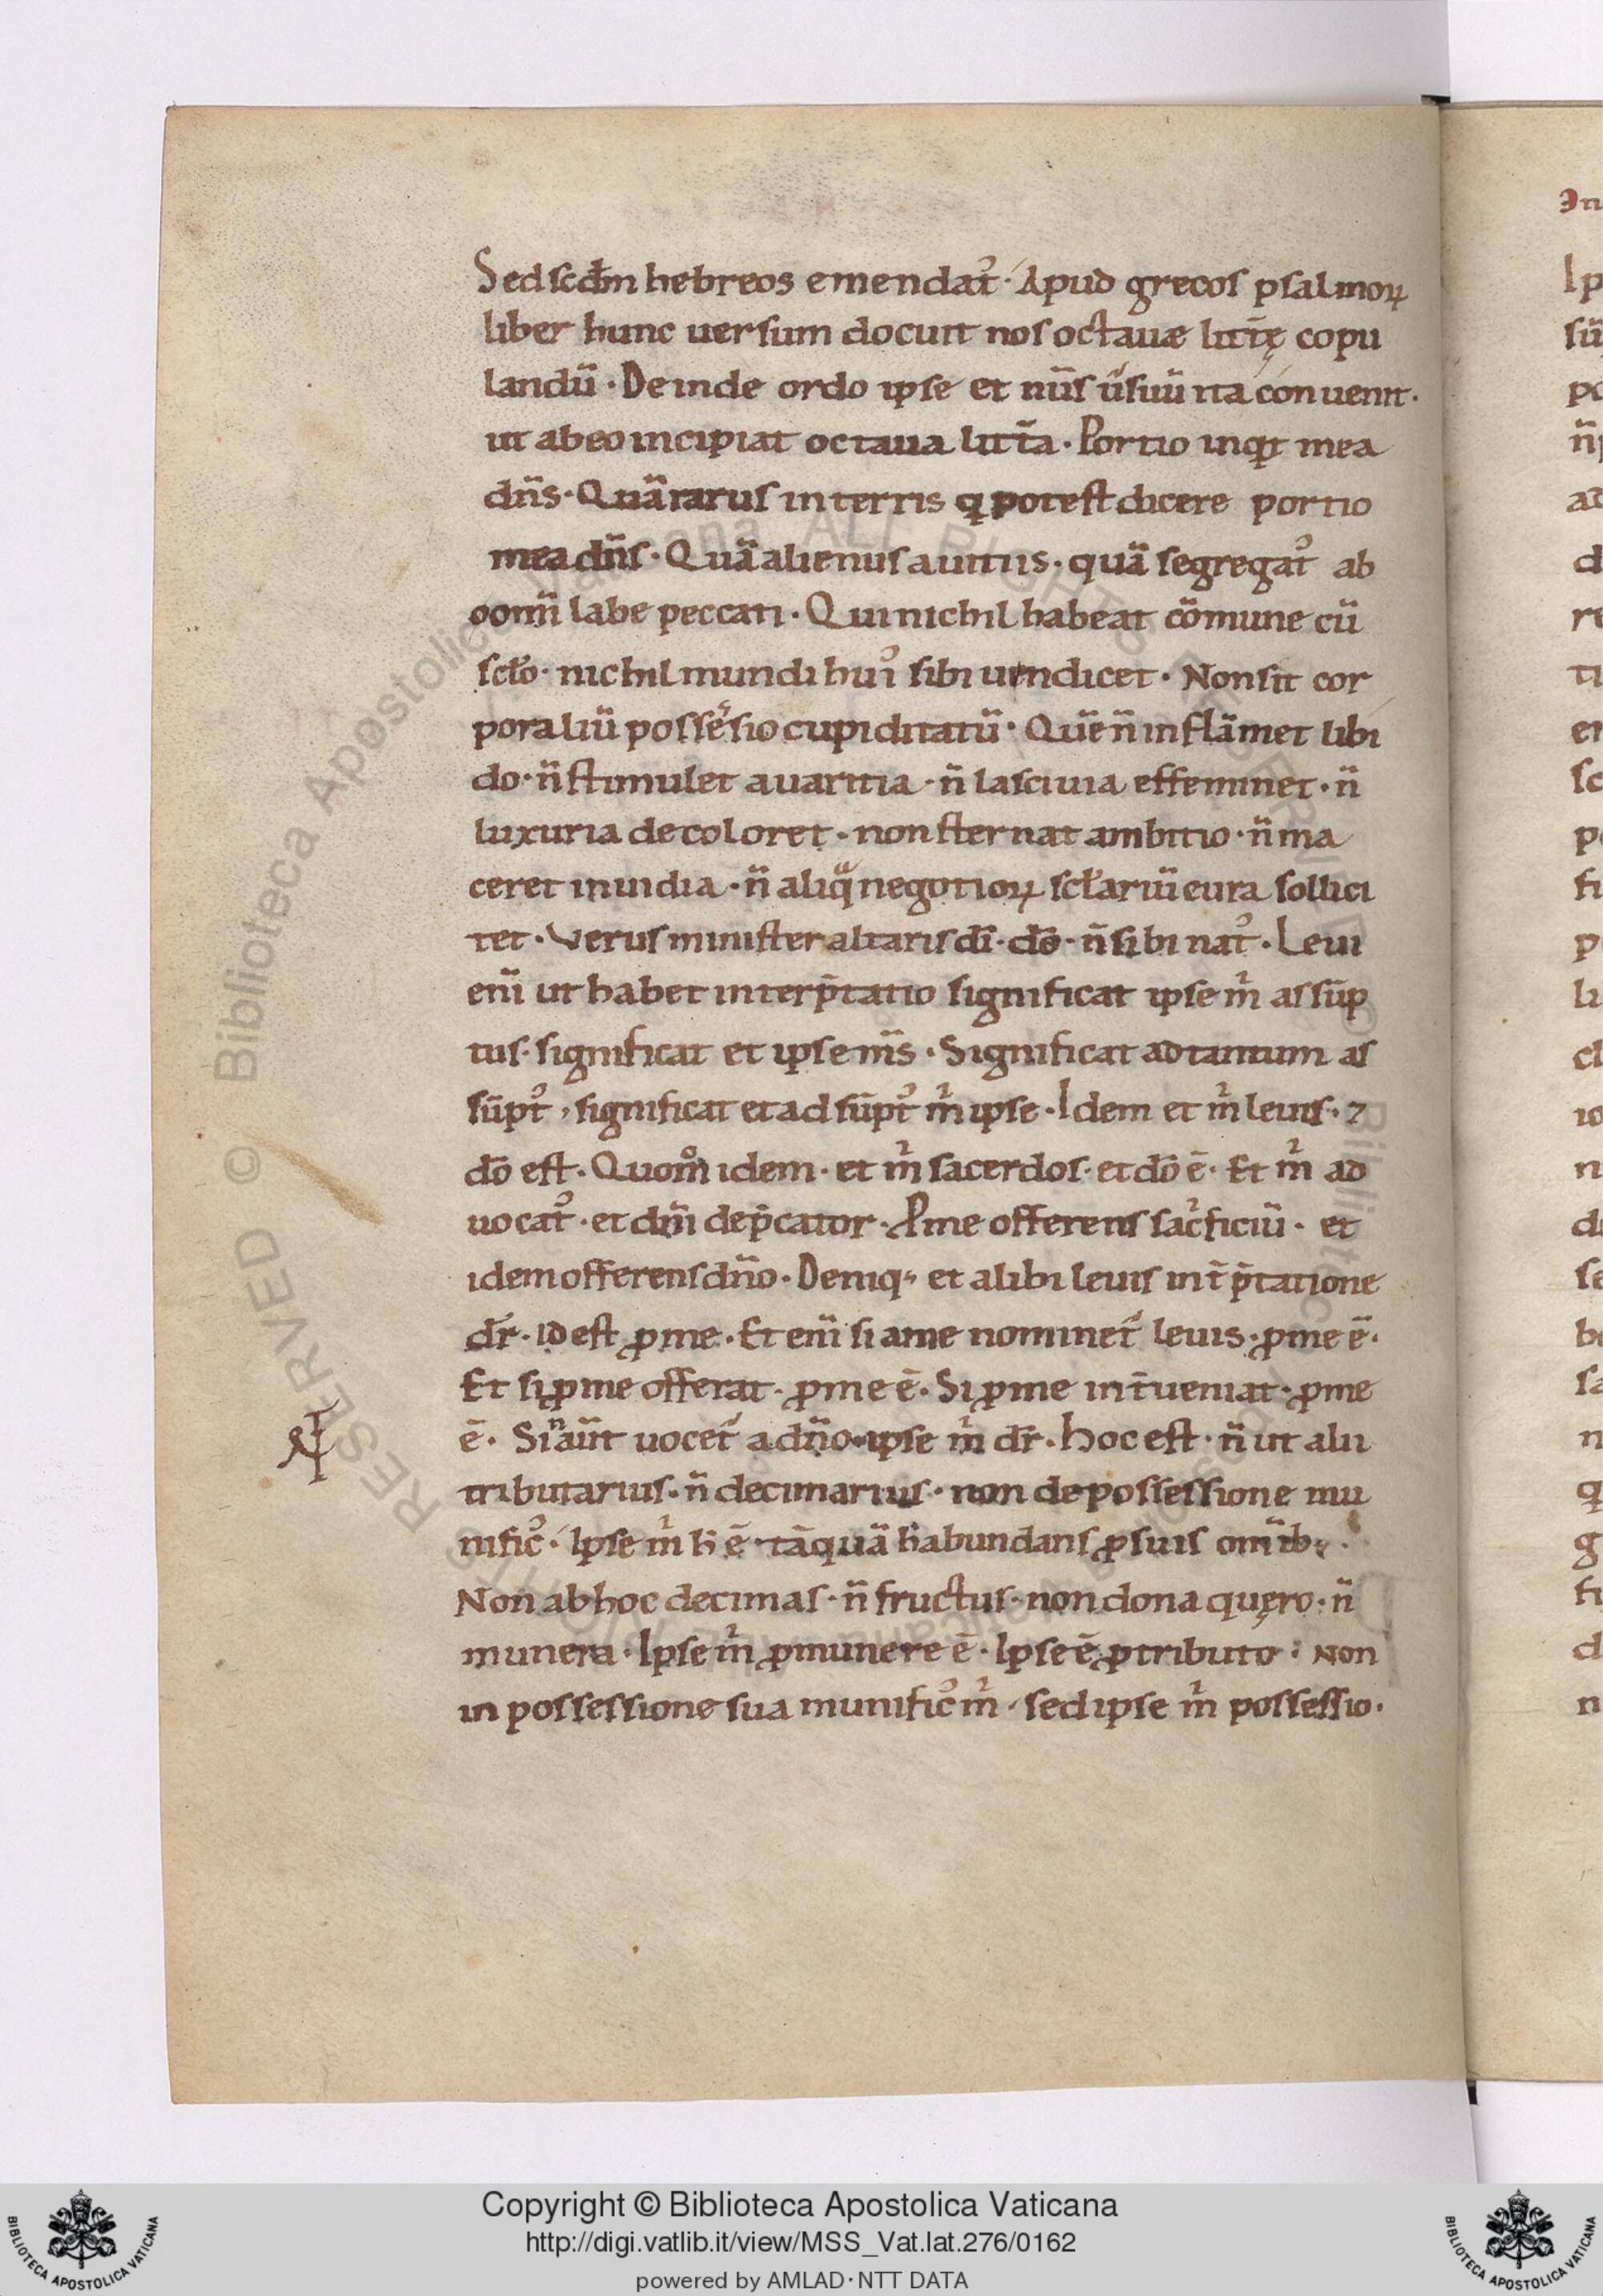 Sed scđm hebreos emendat᾽. Apud grecos psalmoꝝ
liber hunc uersum docuit nos octauæ litt̄ę copu
landū. Deinde ordo ipse et nūs ūsuū ita conuenit.
ut ab eo incipiat octaua litt̄a. Portio inqͥt mea
dn̄s. Quā rarus in terris q potest dicere portio
mea dn̄s. Quā alienus a uitiis. quā segregat᾽ ab
oomī labe peccati. Qui nichil habeat cōmune cū
scło. nichil mundi hui᾽ sibi uendicet. Non sit cor
poraliū possęsio cupiditatū. Quē n̄ inflāmet libi
do. n̄ stimulet auaritia. n̄ lasciuia effeminet. n̄
luxuria decoloret. non sternat ambitio. n̄ ma
ceret inuidia. n̄ aliqͣ negotioꝝ scłariū cura sollici
tet. Verus minister altaris dī. dō. n̄ sibi nat᾽. Leui
enī ut habet interp̄tatio significat ipse m̄ assūp
tus. significat et ipse m̄s. Significat ad tantum as
sūpt᾽, significat et adsūpt᾽ m̄ ipse. Idem et m̄ leuis. ⁊
dō est. Quom̊ idem. et m̄ sacerdos. et dō ē. Et m̄ ad
uocat᾽. et dn̄i dep̄cator. Ꝓ me offerens sac̄ficiū. et
idem offerens dn̄o. Deniq; et alibi leuis int̄p̄tatione
dr̄. id est ꝓ me. Et enī si a me nominet᾽ leuis. ꝓ me ē.
Et si ꝓ me offerat. ꝓ me ē. Si ꝓ me int̄ueniat. ꝓ me
ē. Siⁿ aūt uocet᾽ a dn̄o. ipse m̄ dr̄. hoc est. n̄ ut alii
tributarius. n̄ decimarius. non de possessione mu
nific᾽. Ipse m̄ h̄ ē. tāquā habundans ꝓ suis om̄ib;.
Non ab hoc decimas. n̄ fructus. non dona quęro. n̄
munera. Ipse m̄ ꝓ munere ē. Ipse ē ꝓ tributo. Non
in possessione sua munific᾽ m̄. sed ipse m̄ possessio.
In
Copyright © Biblioteca Apostolica Vaticana
http://digi.vatlib.it/view/MSS_Vat.lat.276/0162
powered by AMLAD·NTT DATA
BIBLIOTECA APOSTOLICA VATICANA
BIBLIOTECA APOSTOLICA VATICANA